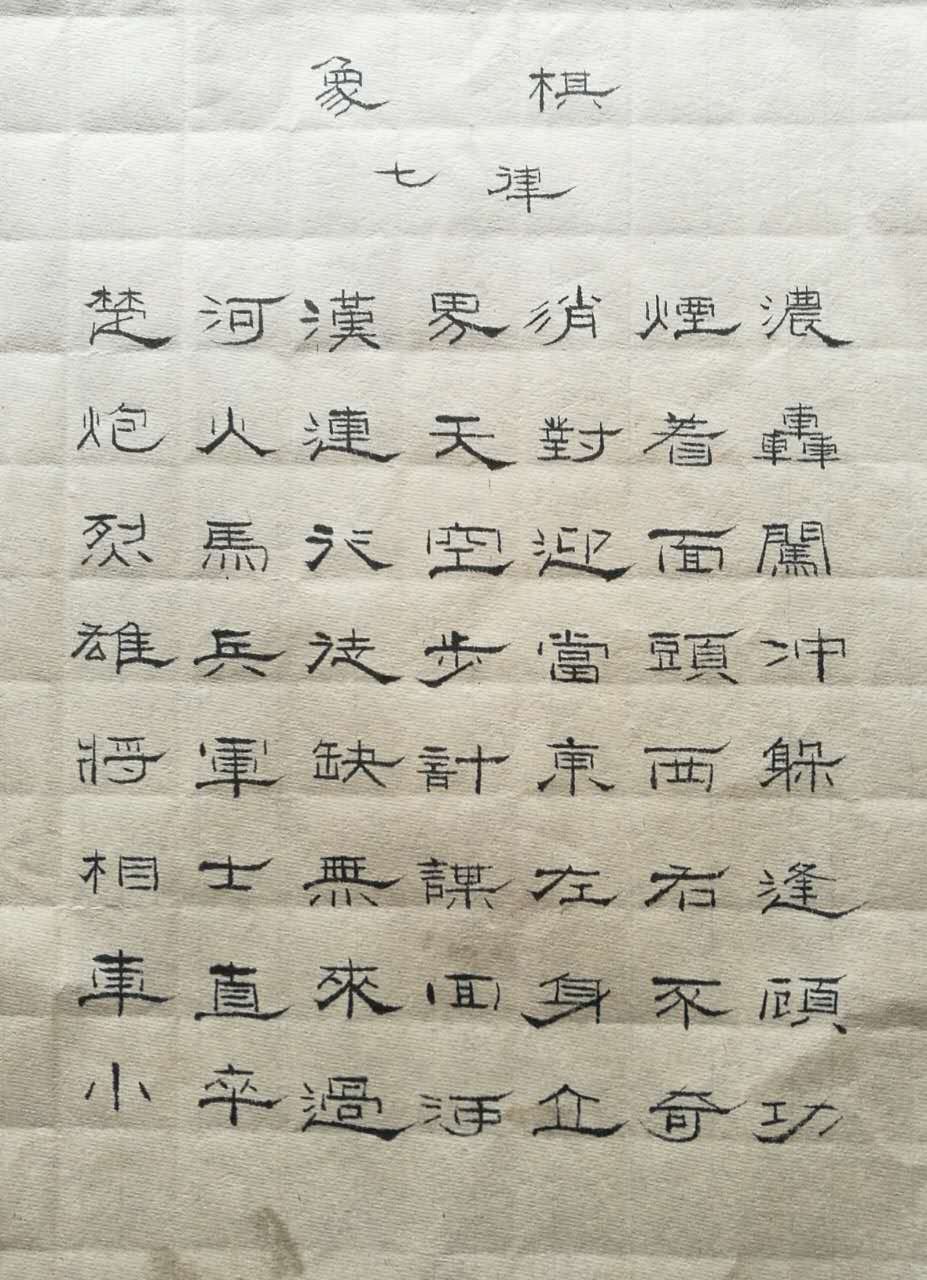 象棋
七律
楚河漢界消煙濃
炮火連天對着轟
烈馬行空迎面闖
雄兵徒步當頭冲
將軍缺計東西躲
相士無謀左右逢
車直來回身不顧
小卒過河立奇功